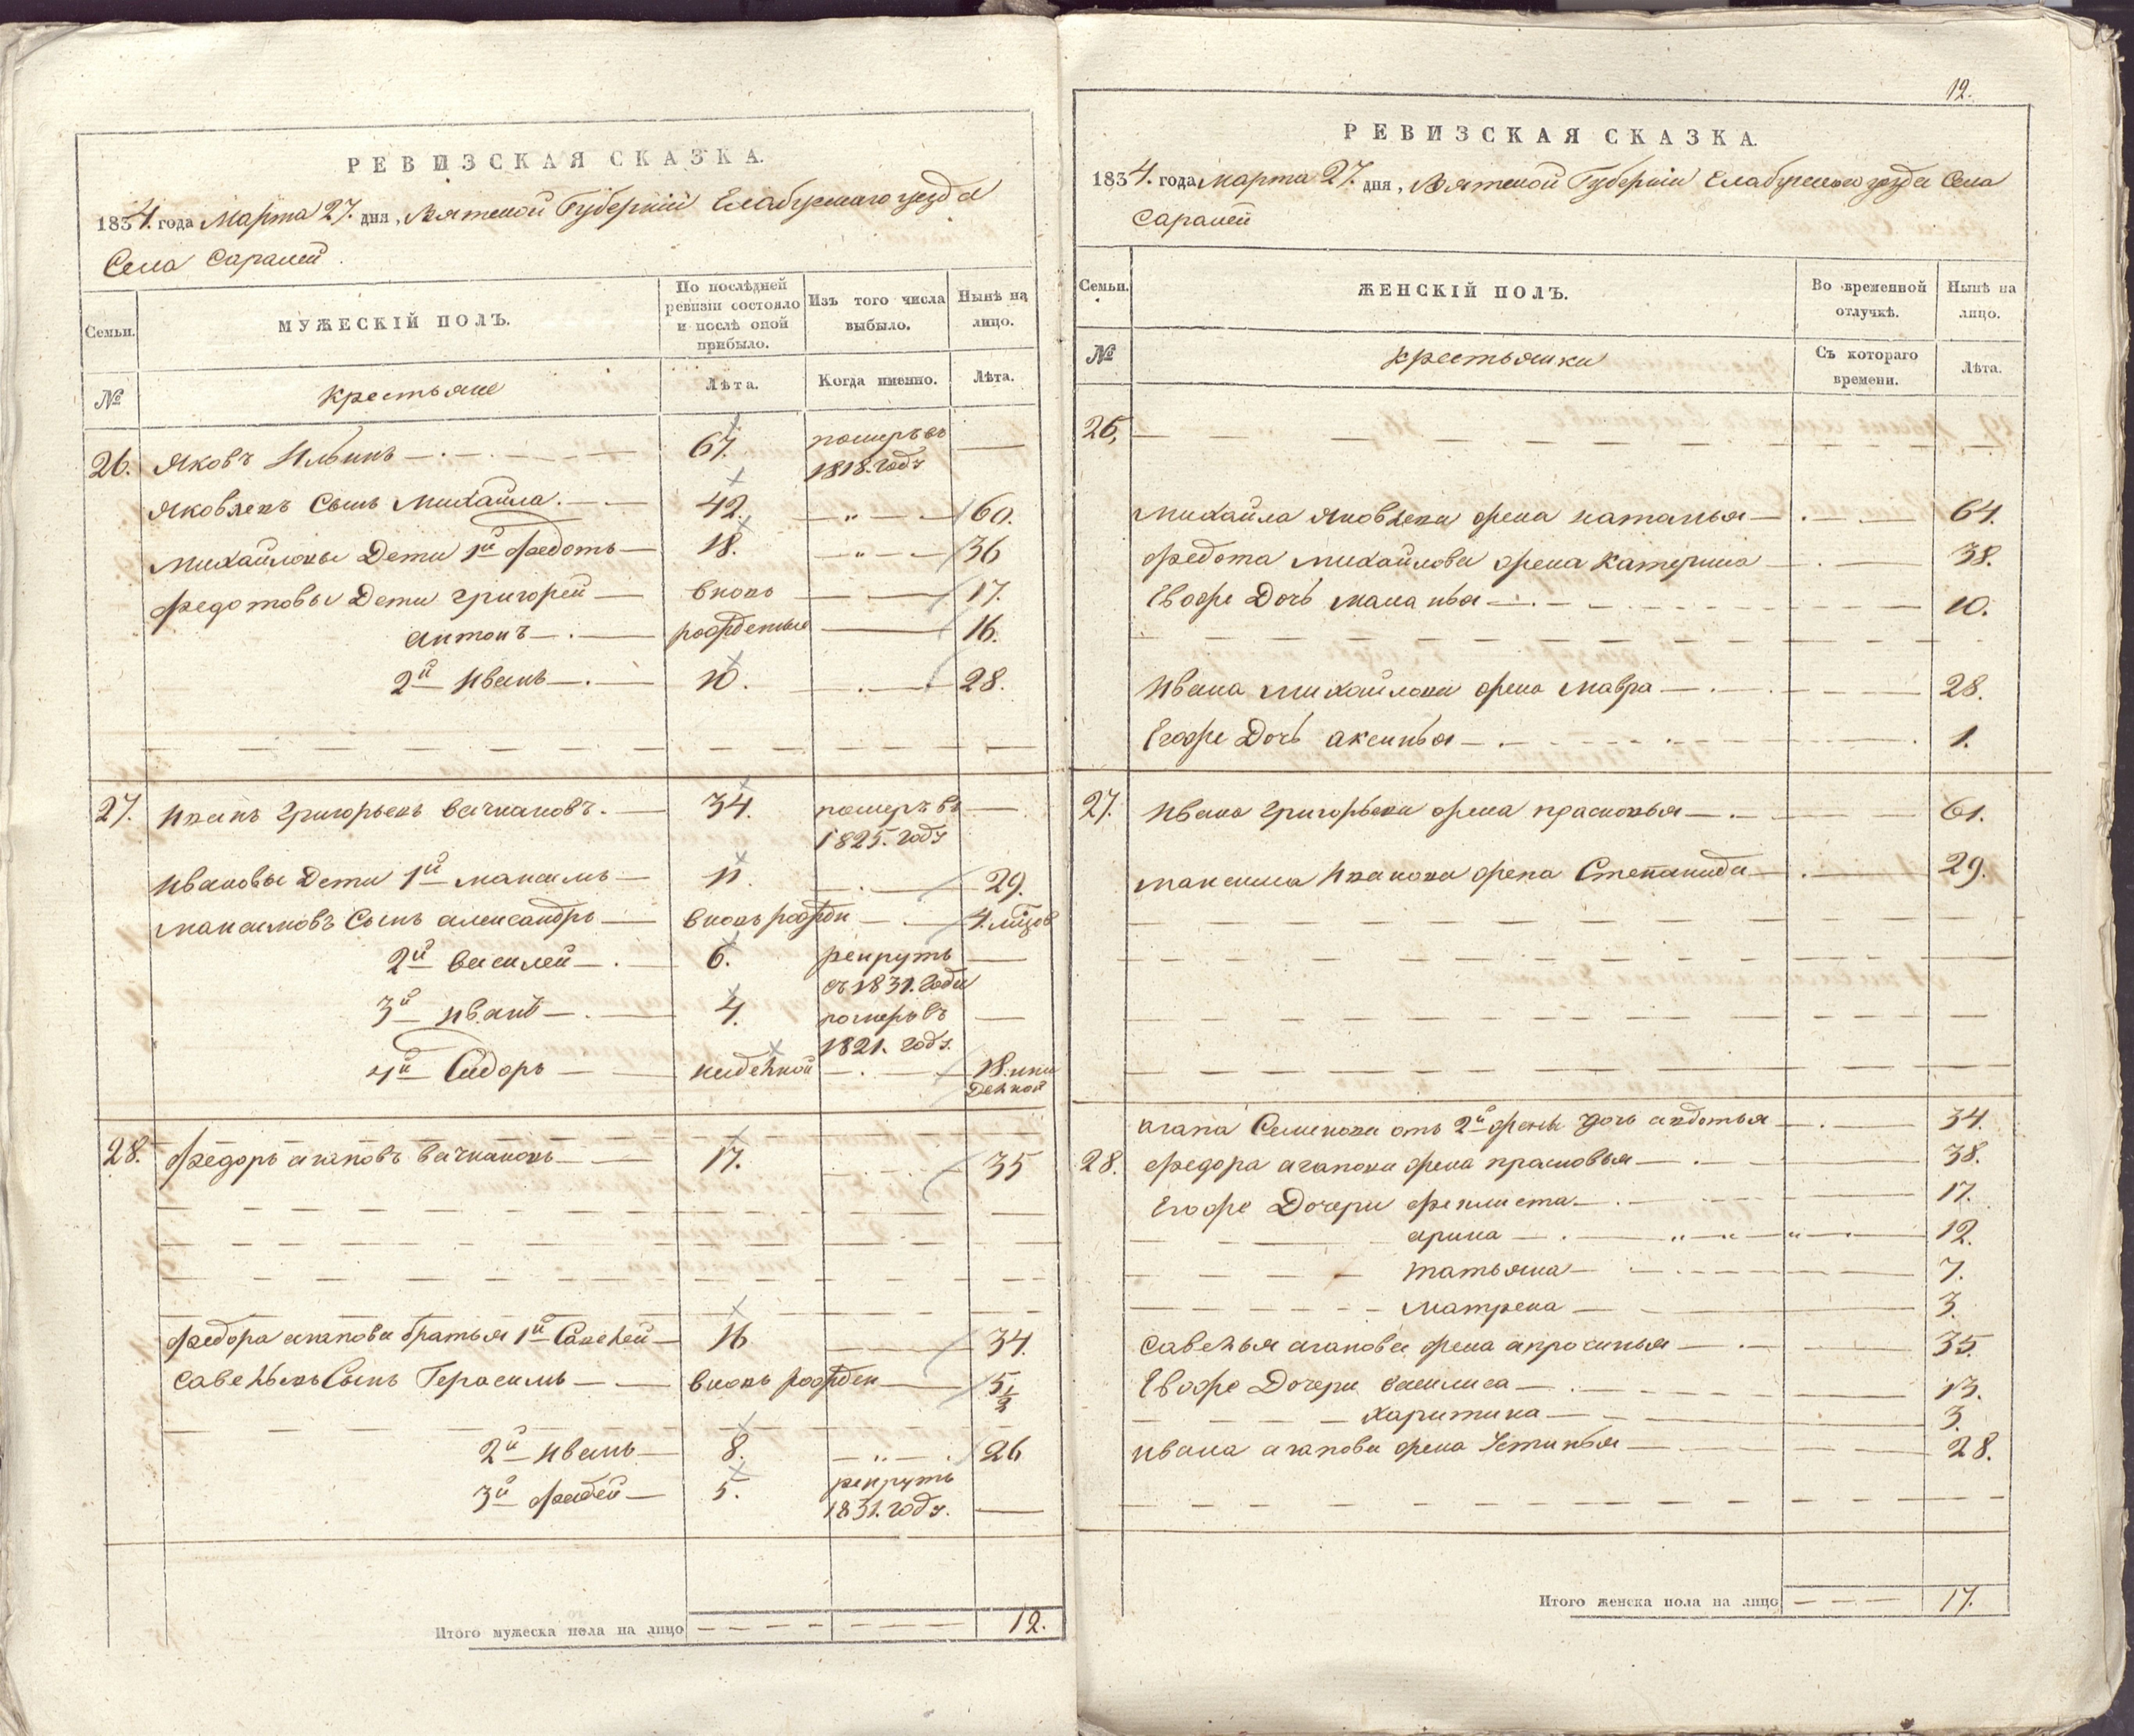 РЕВИЗСКАЯ СКАЗКА.
1834. года Марта 27. дня, Вятской Губернiи Елабужскаго уезда
Села Саралей.
Семьи.
МУЖЕСКІЙ ПОЛЪ.
По послѣдней ревизіи состояло и послѣ оной прибыло.
Изъ того числа выбыло.
Нынѣ на лицо.
№
крестьяне
Лѣта.
Когда именно.
Лѣта.
26. Яковъ Ильинъ 67. померъ въ 1818. годъ
Яковлевъ Сынъ Михайла. 42. 60.
Михайловы Дети 1й Федотъ 18. 36
Федотовы Дети Григорей вновь 17.
Антонъ рожденные 16.
2й Иванъ 10. 28.
27. Иванъ Григорьевъ Вачкановъ. 34. померъ въ 1825. годъ
Ивановы Дети 1й Максимъ 11. 29.
Максимовъ Сынъ Александръ вновь рожден 4. мцов
2й Василей 6. рекрутъ съ 1831. года
3й Иванъ 4. померъ въ 1821. годъ.
4й Сидоръ недѣлной 18. и ни дѣлной
28. Федоръ Агаповъ Вачкановъ 17. 35
Федора Агапова братья 1й Савелей 16 34.
Савельевъ Сынъ Герасимъ вновь рожден 5 1/2
2й Иванъ 8. 26
3й Фадей 5. рекрутъ 1831. годъ.
Итого мужеска пола на лицо 12.
12.
РЕВИЗСКАЯ СКАЗКА.
1834. года Марта 27. дня, Вятской Губернiи Елабужскаго уезда Села
Саралей
Семьи.
ЖЕНСКІЙ ПОЛЪ.
Во временной отлучкѣ.
Нынѣ на лицо.
№
крестьянки
Съ котораго времени.
Лѣта.
26.
Михайла Яковлева жена Наталья 64.
Федота Михайлова жена Катерина 38.
Евоже Дочь Маланья 10.
Ивана Михайлова жена Мавра 28.
Егоже Дочь Аксинья 1.
27. Ивана Григорьева жена Прасковья 61.
Максима Иванова жена Степанида 29.
Агапа Семенова отъ 2й жены Дочь Авдотья 34.
28. Федора Агапова жена Прасковья 38.
Егоже Дочери Феклиста 17.
Арина 12.
Татьяна 7.
Матрена 3.
Савелья Агапова жена Апросинья 35
Евоже Дочери Василиса 13.
Харитина 3.
Ивана Агапова жена Устинья 28.
Итого женска пола на лицо 17.